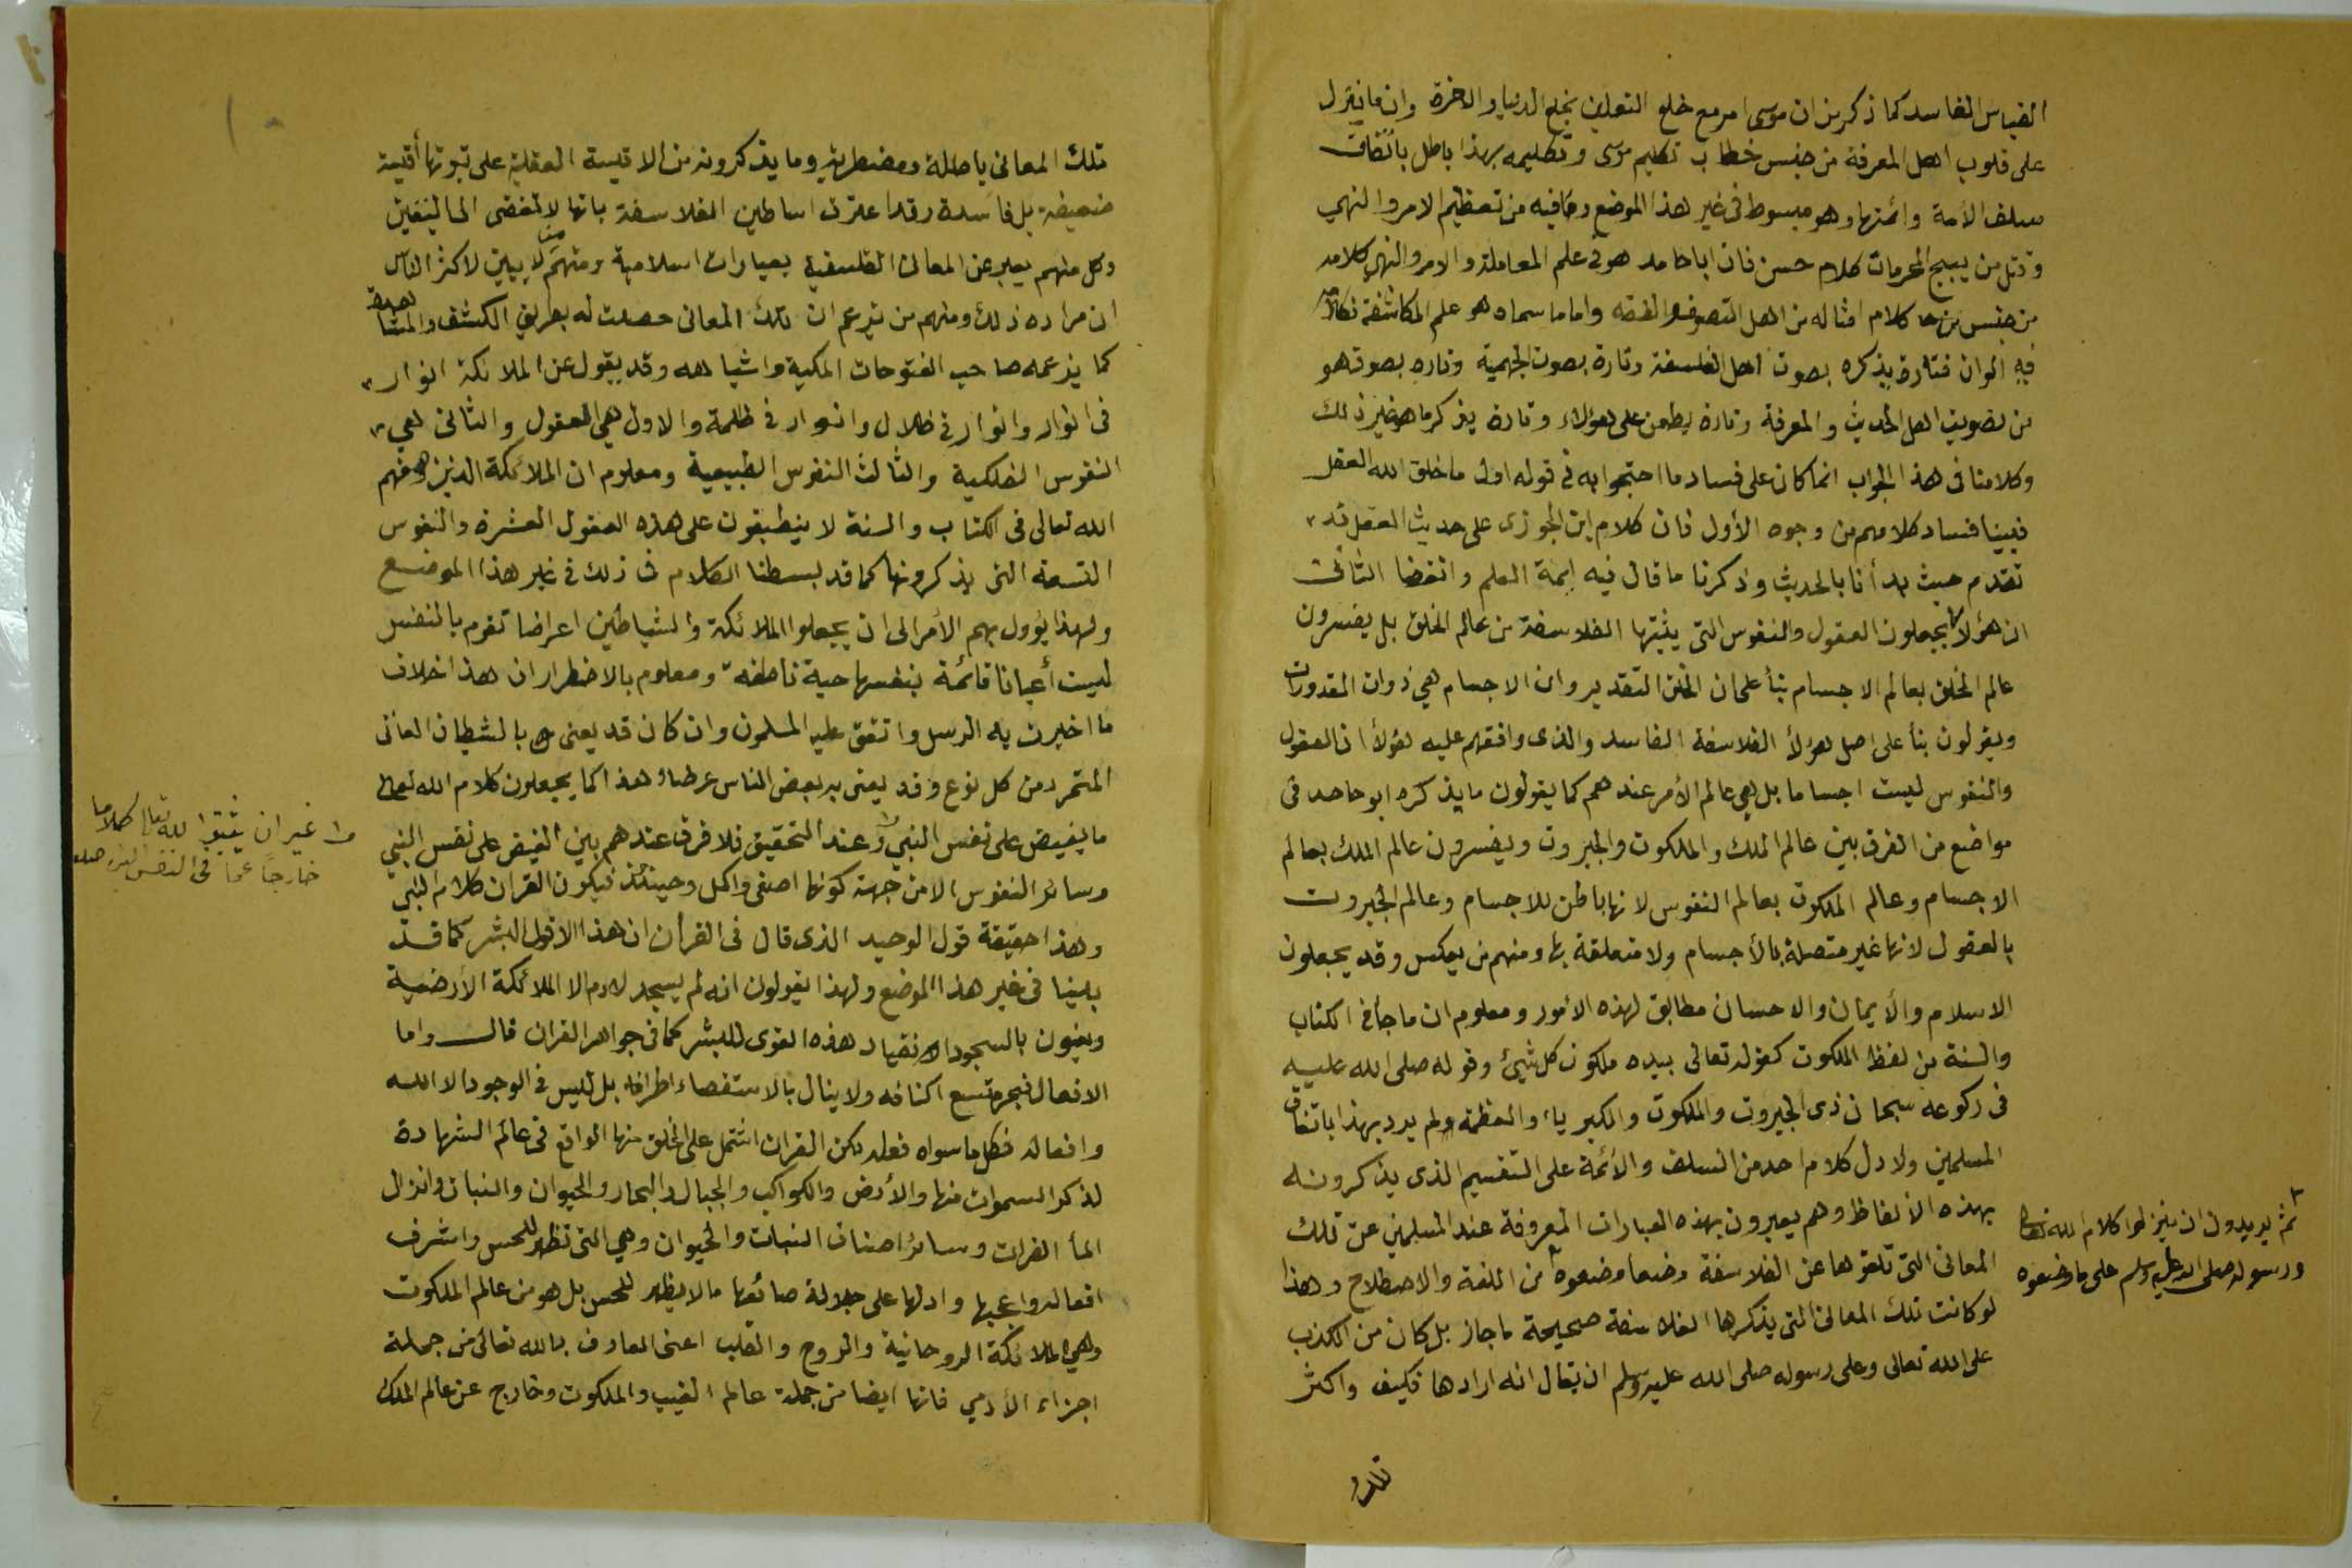 القياس الفاسد كما ذكر من ان موسى امر مع خلع النعلين بخلع الدنيا والاخرة وان ما ينزل
على قلوب اهل المعرفة من جنس خطاب تكليم موسى وتكليمه بهذا باطل باتفاق
سلف الأمة وائمتها وهو مبسوط فى غير هذا الموضع وما فيه من تعظيم الامر والنهي
وقتل من يبيح المحرمات كلام حسن فان ابا حامد هو فى علم المعاملة والامر والنهي كلامه
من جنس كلام امثاله من اهل التصوف والفقه واما ما سماه هو علم المكاشفة فكلامه
فيه الوان فتارة يذكره بصوت اهل الفلسفة وتارة بصوت الجهمية وتاره بصوت هو
من تصويت اهل الحديث والمعرفة وتارة يطعن على هؤلاء وتارة يذكر ما هو غير ذلك
وكلامنا فى هذا الجواب انما كان على فساد ما احتجوا به فى قوله اول ما خلق الله العقل
فبينا فساد كلامهم من وجوه الأول فان كلام ابن الجوزى على حديث العقل قد
تقدم حيث بدأنا بالحديث وذكرنا ما قال فيه ايمة العلم وانقضا الثانى
ان هؤلا يجعلون العقول والنفوس التى يثبتها الفلاسفة من عالم الخلق بل يفسرون
عالم الخلق بعالم الاجسام بنأ على ان الخلق التقدير وان الاجسام هي ذوات المقدورات
ويقولون بنأ على اصل هؤلأ الفلاسفة الفاسد والذى وافقهم عليه هؤلأ ان العقول
والنفوس ليست اجساما بل هي عالم الأمر عندهم كما يقولون ما يذكره ابو حامد فى
مواضع من الفرق بين عالم الملك والملكوت والجبروت ويفسرون عالم الملك بعالم
الاجسام وعالم الملكوت بعالم النفوس لانها باطن للاجسام وعالم الجبروت
بالعقول لانها غير متصلة بالأجسام ولا متعلقة بها ومنهم من يعكس وقد يجعلون
الاسلام والأيمان والاحسان مطابق لهذه الامور ومعلوم ان ما جأ فى الكتاب
والسنة من لفظ الملكوت كقوله تعالى بيده ملكوت كل شيئ وقوله صلى الله عليه
فى ركوعه سبحان ذى الجبروت والملكوت والكبرياء والعظمة ولم يرد بهذا باتفاق
المسلمين ولا دل كلام احد من السلف والائمة على التقسيم الذى يذكرونه
بهذه الالفاظ وهم يعبرون بهذه العبارات المعروفة عند المسلمين عن تلك
المعانى التى تلقوها عن الفلاسفة وضعا وضعوه من اللغة والاصطلاح وهذا
لو كانت تلك المعانى التى يذكرها الفلاسفة صحيحة ما جاز بل كان من الكذب
على الله تعالى وعلى رسوله صلى الله عليه وسلم ان يقال انه ارادها فكيف واكثر
تلك
ثم يريدون ان ينزلوا كلام الله تعالى
ورسوله صلى الله عليه وسلم على ما وضعوه
تلك المعانى باطلة ومضطربة وما يذكرونه من الاقيسة العقلية على ثبوتها أقيسة
ضعيفة بل فاسدة وقد اعترف اساطين الفلاسفة بانها لا تفضى الى اليقين
وكل منهم يعبر عن المعانى الفلسفية بعبارات اسلامية ومنهم من لا يبين لاكثر الناس
ان مراده ذلك ومنهم من يزعم ان تلك المعانى حصلت له بطريق الكشف والمشاهدة
كما يزعمه صاحب الفتوحات المكية واشباهه وقد يقول عن الملائكة انوار
فى انوار وانوار فى ظلال وانوار فى ظلمة والاول هي العقول والثانى هي
النفوس الفلكية والثالث النفوس الطبيعية ومعلوم ان الملائكة الذين وصفهم
الله تعالى فى الكتاب والسنة لا ينطبقون على هذه العقول العشرة والنفوس
التسعة التى يذكرونها كما قد بسطنا الكلام فى ذلك فى غير هذا الموضع
ولهذا يؤول بهم الأمر الى ان يجعلوا الملائكة والشياطين اعراضا تقوم بالنفس
ليست أعيانا قائمة بنفسها حية ناطقة ومعلوم بالاضطرار ان هذا خلاف
ما اخبرت به الرسل واتفق عليه المسلمون وان كان قد يعنى بالشيطان العاتى
المتمرد من كل نوع وقد يعنى به بعض الناس عرضا وهذا كما يجعلون كلام الله تعالى
ما يفيض على نفس النبي وعند التحقيق فلا فرق عندهم بين الفيض على نفس النبي
وسائر النفوس الا من جهة كونها اصفى واكمل وحينئذ فيكون القران كلام النبي
وهذا حقيقة قول الوحيد الذى قال فى القرأن ان هذا الا قول البشر كما قد
بينا فى غير هذا الموضع ولهذا يقولون انه لم يسجد لادم الا الملائكة الأرضية
ويعنون بالسجود الانقياد هذه القوى للبشر كما فى جواهر القران قال واما
الافعال فبحر متسع اكنافه ولا ينال بالاستقصاء اطرافه بل ليس فى الوجود الا الله
وافعاله فكل ما سواه فعله لكن القران اشتمل على الخلق منها الواقع فى عالم الشهادة
لذكر السموات منها والأرض والكواكب والجبال والبحار والحيوان والنبات وانزال
المأ الفرات وسائر اصناف النبات والحيوان وهي التى تظهر للحس واشرف
افعاله واعجبها وادلها على جلالة صانعها ما لا يظهر للحس بل هو من عالم الملكوت
وهي الملائكة الروحانية والروح والقلب اعنى العارف بالله تعالى من جملة
اجزاء الأدمي فانها ايضا من جملة عالم الغيب والملكوت وخارج عن عالم الملك
غير ان يثبتوا لله تعالى كلاما
خارجًا عما فى النفس